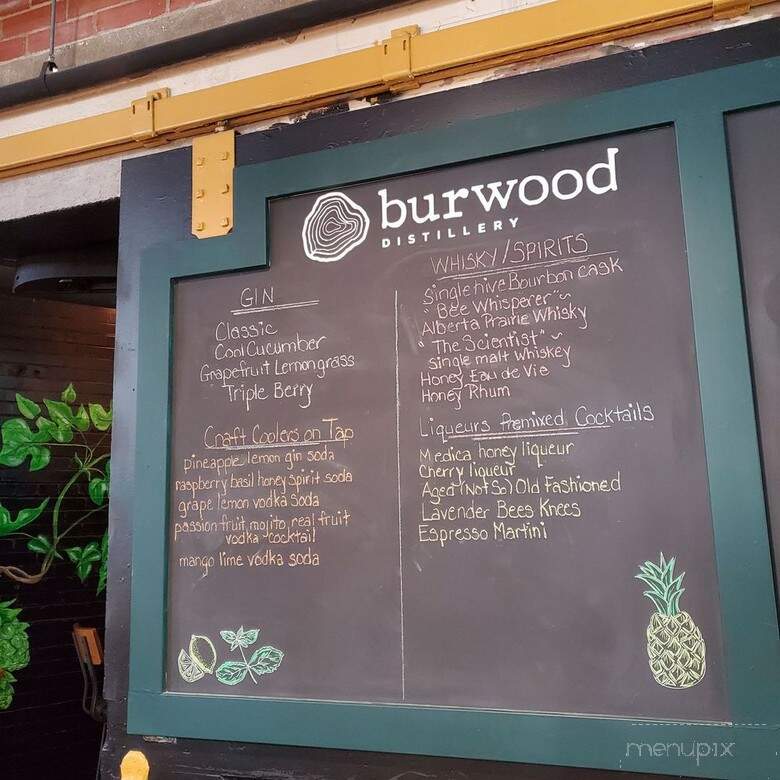 burwood
DISTILLERY
GIN
Classic
Cool Cucumber
Grapefruit Lemongrass
Triple Berry
Craft Coolers on Tap
pineapple lemon gin soda
raspberry basil honey spirit soda
grape lemon vodka soda
passion fruit mojito real fruit
vodka cocktail
mango lime vodka soda
WHISKY/SPIRITS
Single hive Bourbon cask
"Bee Whisperer" ~
Alberta Prairie Whisky
"The Scientist" ~
single malt whiskey
Honey Eau de Vie
Honey Rhum
Liqueurs Premixed Cocktails
Medica honey liqueur
Cherry liqueur
Aged (Not So) Old Fashioned
Lavender Bees Knees
Espresso Martini
menupix